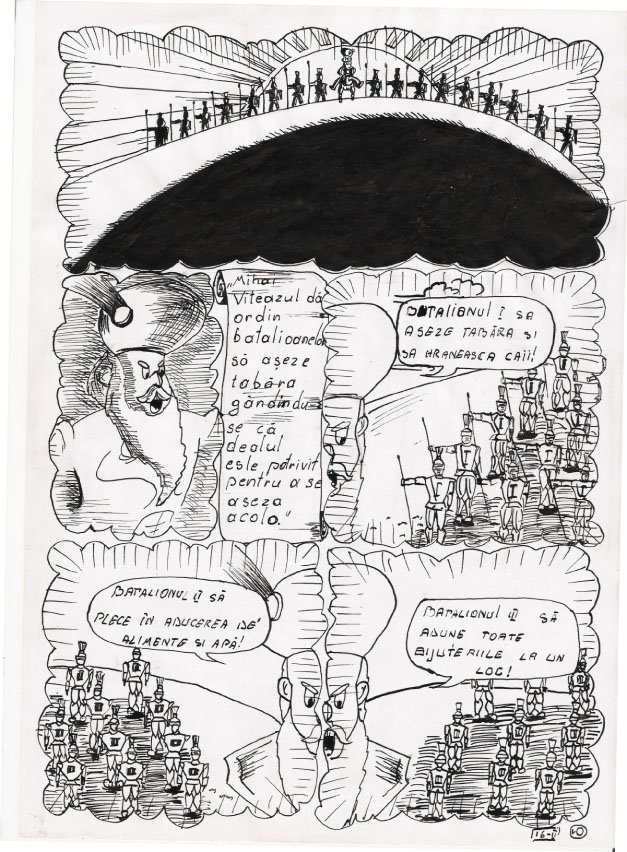 „Mihai
Viteazul dă
ordin
batalioanelor
să așeze
tabăra
gândindu-
se că
dealul
este potrivit
pentru a se
așeza
acolo."
BATALIONUL I SA
AȘEZE TABĂRA SI
SA HRANEASCA CAII!
BATALIONUL II SĂ
PLECE ÎN ADUCEREA DE
ALIMENTE SI APĂ!
BATALIONUL III SĂ
ADUNE TOATE
BIJUTERIILE LA UN
LOC!
I
I
I
I
I
II
II
II
II
16-I